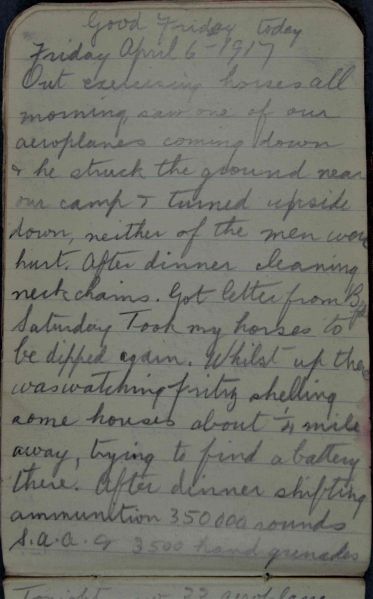 Good Friday today
Friday April 6 - 1917
Out exercising horses all
morning, saw one of our
aeroplanes coming down
& he struck the ground near
our camp & turned upside
down, neither of the men were
hurt. After dinner cleaning
neck chains. Got letter from
Saturday Took my horses to
be dipped again. Whilst up there
was watching fritz shelling
some houses about ¼ mile
away, trying to find a battery
there. After dinner shifting
ammunition 350000 rounds
S.A.A. & 3500 hand grenades
Tonight 22 aeroplane